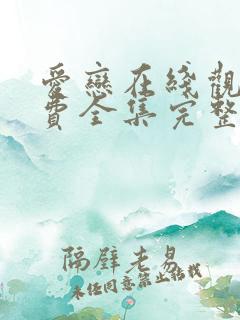 爱戀在綫觀
費全集完整
隔壁老易
未经同意禁止转载